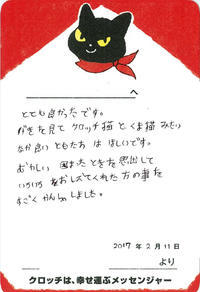 へ
とても良かったです。
がきを見て クロッチ猫と くま猫 みたい
なか良い ともだち は ほしいです。
むかしい 困ったときを 思出して
いろいろ をおしえてくれた方の事を
すごく かんしゃしました。
2017年2月11日
より
クロッチは、幸せ運ぶメッセンジャー